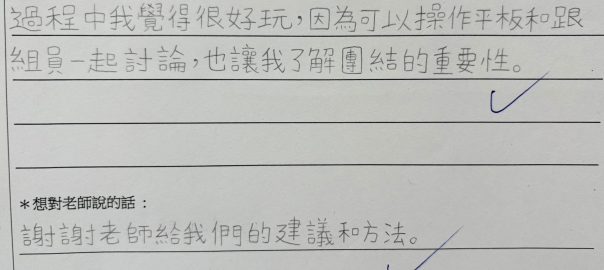 過程中我覺得很好玩，因為可以操作平板和跟
組員一起討論，也讓我了解團結的重要性。
＊想對老師說的話：
謝謝老師給我們的建議和方法。